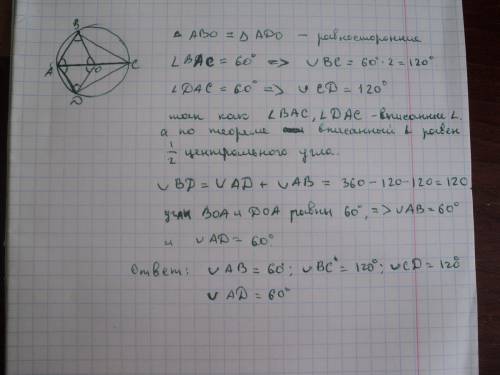 B
A O C
D
△ ABO = △ ADO – равносторонние
∠BAC = 60° => ∪BC = 60°·2 = 120°
∠DAC = 60° => ∪CD = 120°
так как ∠BAC, ∠DAC – вписанные ∠.
а по теореме вписанный ∠ равен
1/2 центрального угла.
∪BD = ∪AD + ∪AB = 360 – 120 – 120 = 120
углы BOA и DOA равны 60°, => ∪AB = 60°
и ∪AD = 60°.
Ответ: ∪AB = 60°; ∪BC = 120°; ∪CD = 120°
∪AD = 60°